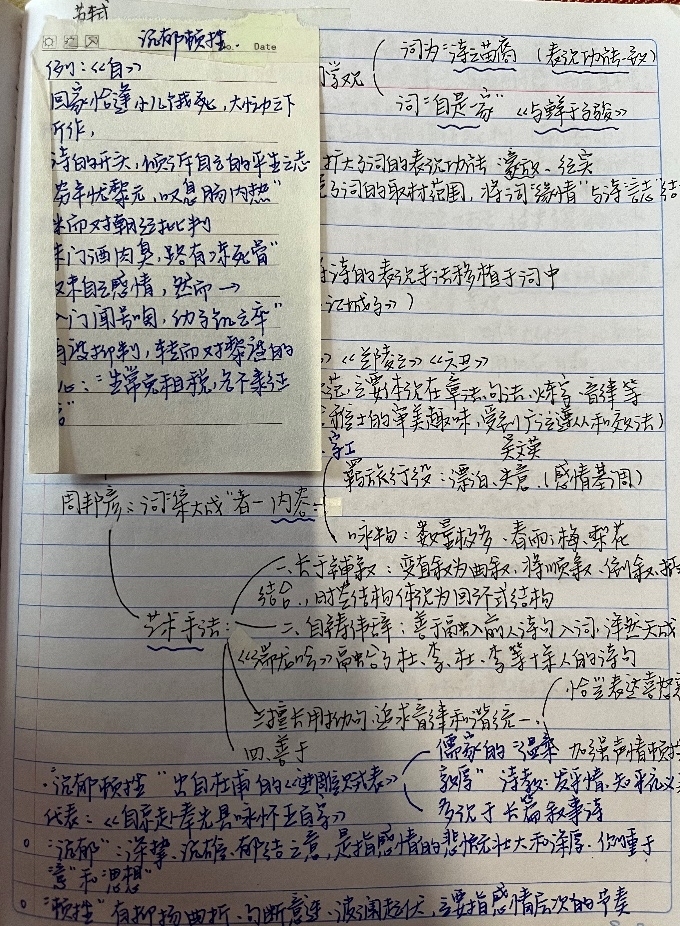 苏轼
沉郁顿挫
Date
例：《自》
回家恰逢小儿饿死，大恸之下
所作，
诗的开头，倾诉自己的平生之志
穷年忧黎元，叹息肠内热"
而对朝廷批判
朱门酒肉臭，路有冻死骨"
自己感情，然而→
入门闻号咷，幼子饥已卒"
转而对黎民的
心："生常免租税，名不隶征
词为"诗之苗裔（表现功法一致）
词"自是一家"《与鲜于子骏》
扩大了词的表现功法 豪放、纪实
了词的取材范围，将词"缘情"与诗"言志"结
诗的表现手法移植于词中
江城子》）
》《兰陵王》《六丑》
范，主要体现在章法、句法、炼字、音律等
雅士的审美趣味，受到广泛遵从和效法）
字工
吴文英
羁旅行役：漂泊、失意。（感情基调）
周邦彦：词"集大成"者－内容：
咏物：数量极多、春雨、梅、梨花
一、长于铺叙：变直叙为曲叙，将顺叙、倒叙、插
结合，时空结构体现为回环式结构
艺术手法：
二、自铸伟辞：善于融入前人诗句入词，浑然天成
融合了杜、李、杜、李等十余人的诗句
三、擅长用拗句，追求音律和谐统一、
恰当表达喜怒哀
四、善于
儒家的"温柔
加强声情顿挫
"沉郁顿挫"出自杜甫的《进雕赋表》
敦厚"诗教：发乎情，知乎礼义
代表：《自京赴奉先县咏怀五百字》
多见于长篇叙事诗
"沉郁"：深挚、沉雄、郁结之意，是指感情的悲慨壮大和深厚。侧重于
"意"和"思想"
"顿挫"有抑扬曲折、句断意连、波澜起伏，主要指感情层次的节奏